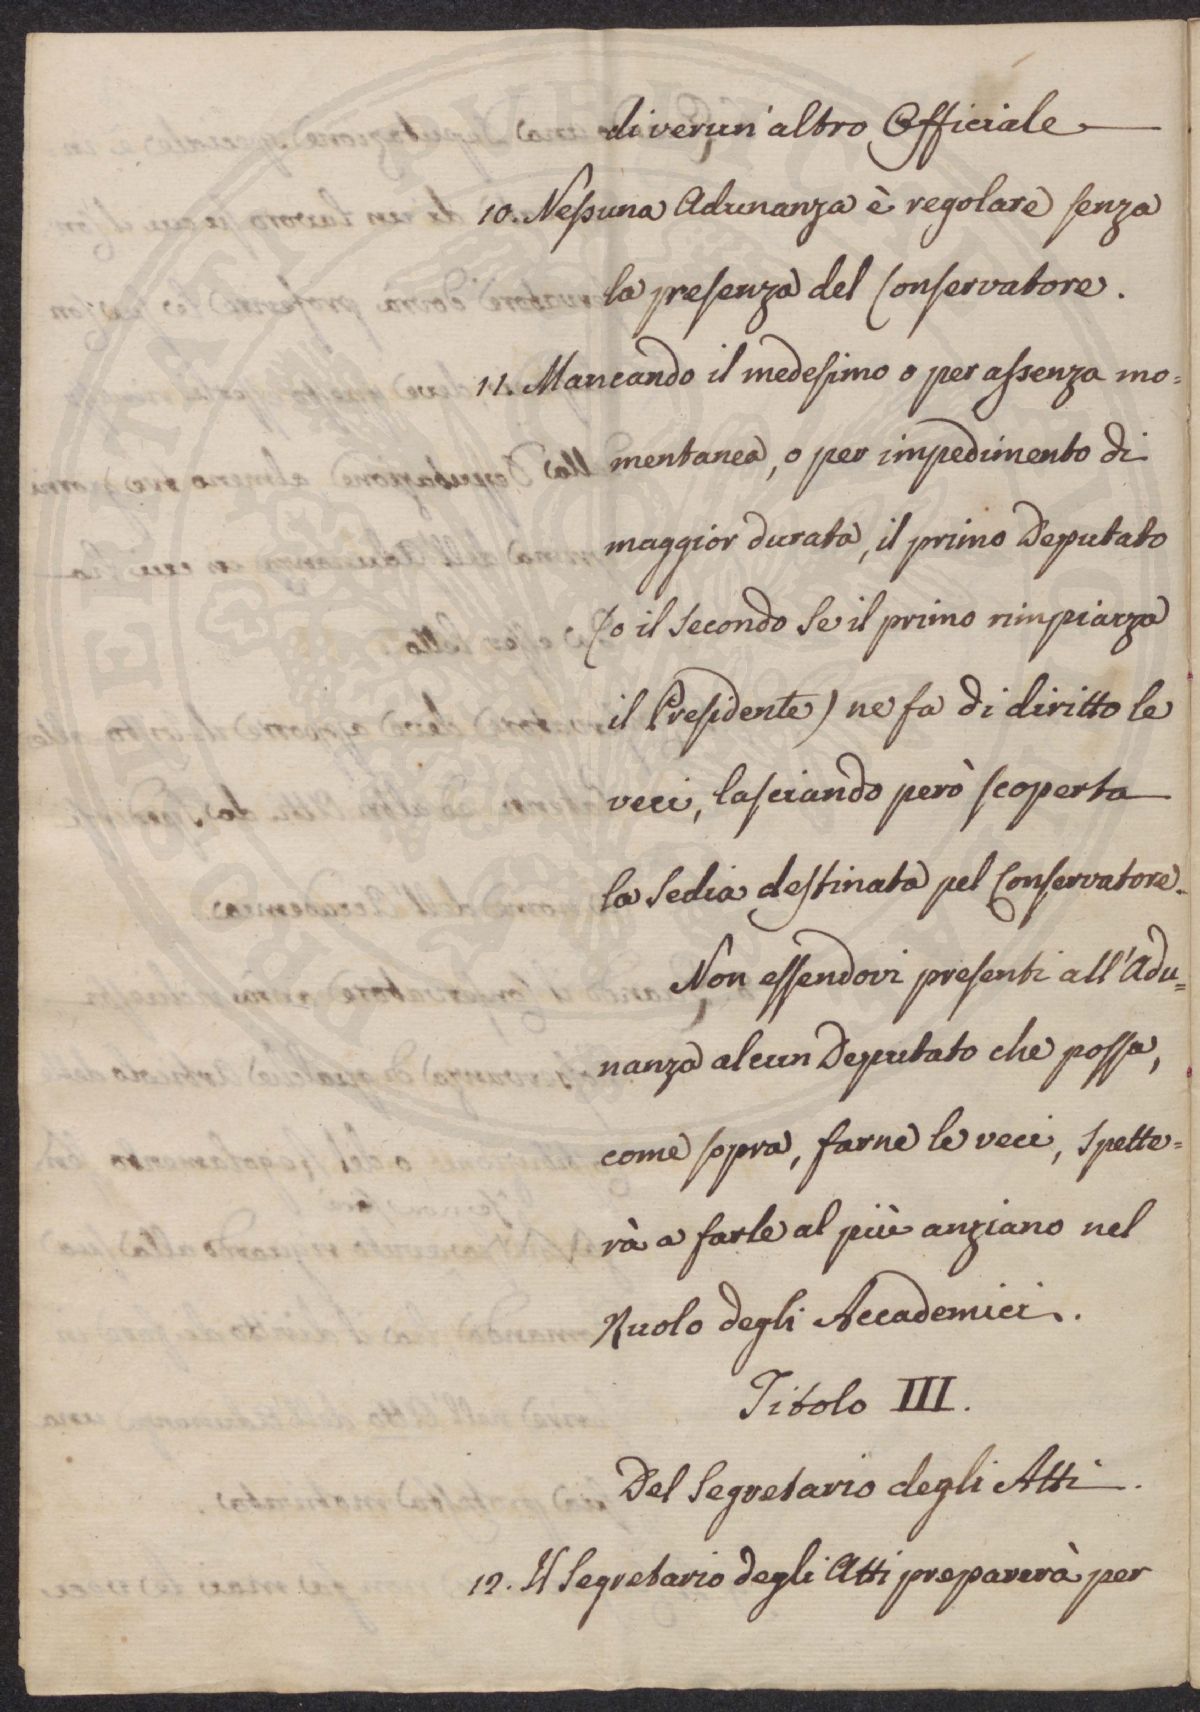 di verun'altro Officiale
10. Nessuna Adunanza è regolare senza
la presenza del Conservatore.
11. Mancando il medesimo o per assenza mo=
mentanea, o per impedimento di
maggior durata, il primo Deputato
(o il Secondo se il primo rimpiazza
il Presidente) ne fa di diritto le
veci, lasciando però scoperta
la Sedia destinata pel Conservatore.
Non essendovi presenti all'Adu=
nanza alcun Deputato che possa,
come sopra, farne le veci, spette=
rà a farle al più anziano nel
Ruolo degli Accademici.
Titolo III.
Del Segretario degli Atti.
12. Il Segretario degli Atti preparerà per